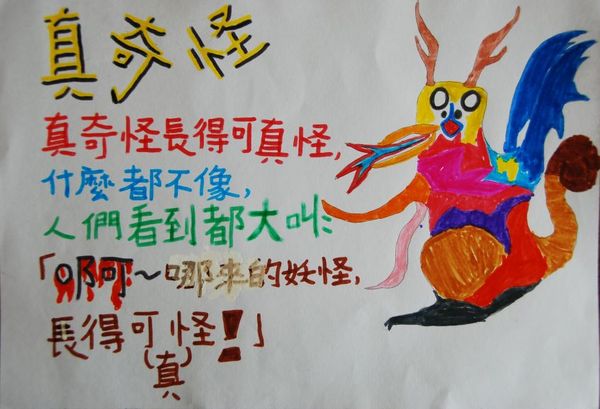 真奇怪
真奇怪長得可真怪，
什麼都不像，
人們看到都大叫：
「啊～哪來的妖怪，
長得可怪！」
（真）